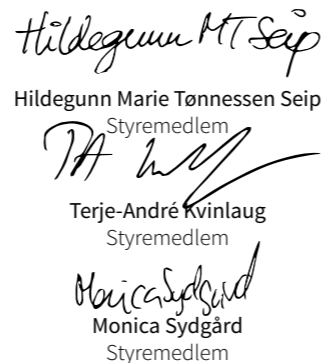 Hildegunn MT Seip
Hildegunn Marie Tønnessen Seip
Styremedlem
Terje-André Kvinlaug
Styremedlem
Monica Sydgård
Monica Sydgård
Styremedlem